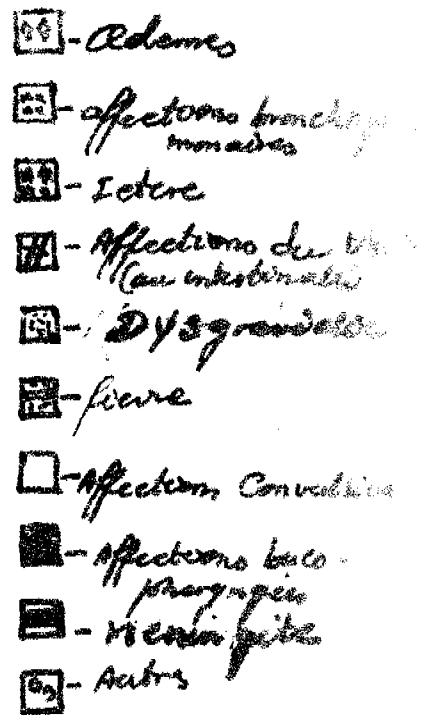 - Œdemes
- affections broncho
monaires
- Ictere
- Affections du
(au intestinale)
- 
- fievre
- Affections Convulsive
- Affections buco-
pharyngien
- Meningite
- Autres